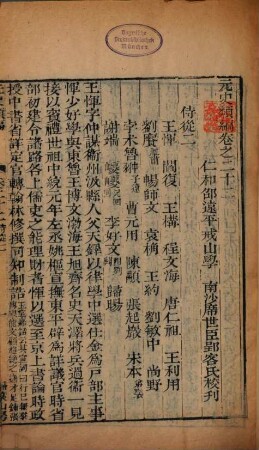 Bayerische
Staatsbibliothek
München
元史類編卷之二十二
仁和邵遠平戒山學 南沙席世臣郢客氏校刊
侍從二
王惲 閻復 王構 程文海 唐仁祖 王利用
劉賡 暢師文 袁桷 王約 劉敏中 尚野
字术魯翀子 曹元用 陳顥 張起巖 宋本弟褧
謝端 巙巙 李好文 歸暘
王惲字仲謀衞州汲縣人父天鐸以律學中選仕金爲戶部主事
惲少好學與東魯王博文渤海王旭齊名史天澤將兵過衞一見
接以賓禮世祖中統元年左丞姚樞宣撫東平辟爲詳議官時省
部初建令諸路各上儒吏之能理財者惲以選至京上書論時政
授中書省詳定官轉翰林修撰同知制誥